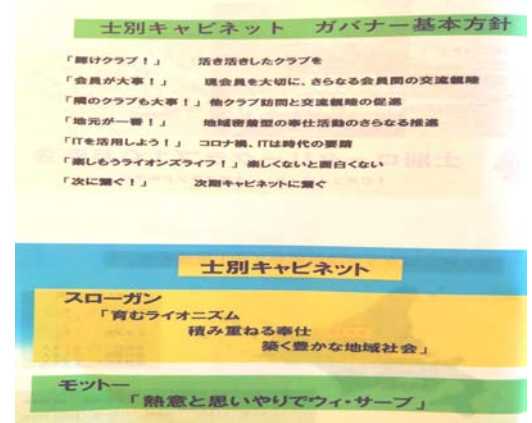 士別キャビネット ガバナー基本方針
「輝けクラブ！」 活き活きしたクラブを
「会員が大事！」 現会員を大切に、さらなる会員間の交流親睦
「隣のクラブも大事！」他クラブ訪問と交流親睦の促進
「地元が一番！」 地域密着型の奉仕活動のさらなる推進
「ITを活用しよう！」 コロナ禍、ITは時代の要請
「楽しもうライオンズライフ！」楽しくないと面白くない
「次に繋ぐ！」 次期キャビネットに繋ぐ
士別キャビネット
スローガン
「育むライオニズム
積み重ねる奉仕
築く豊かな地域社会」
モットー
「熱意と思いやりでウィ・サーブ」